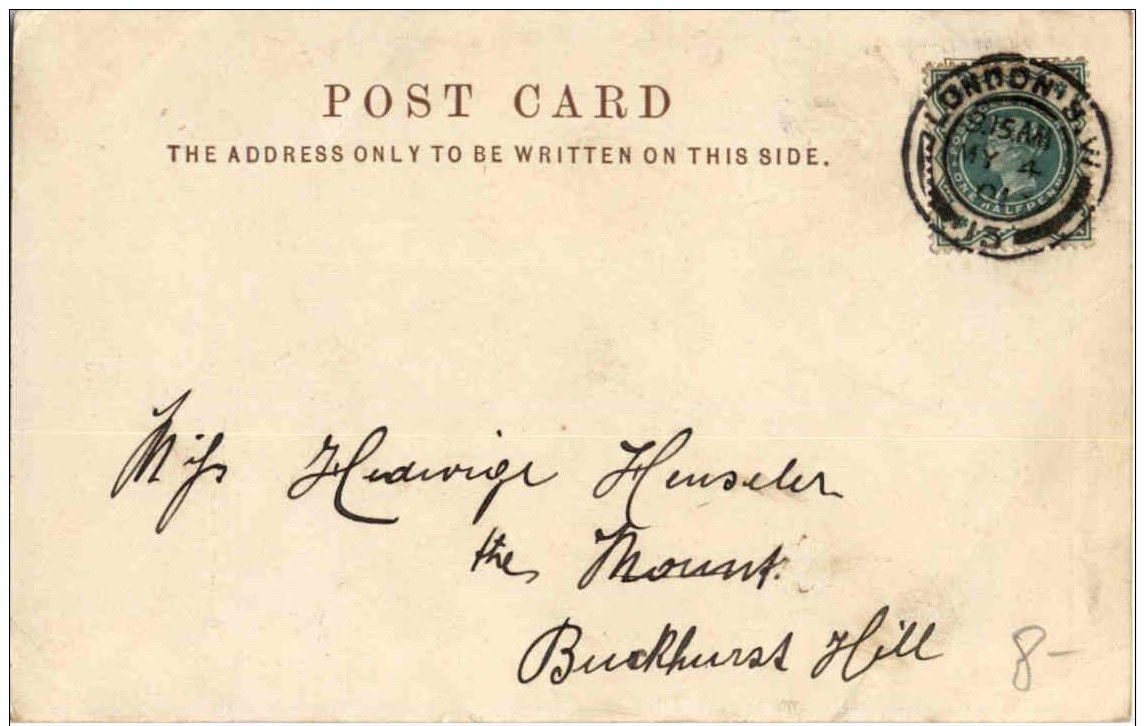 POST CARD
THE ADDRESS ONLY TO BE WRITTEN ON THIS SIDE.
LONDON. S.W.
.15AM
MY 4
01
13
ONE HALFPENNY
Miss Hedwige Henseler
the Mount.
Buckhurst Hill
8-